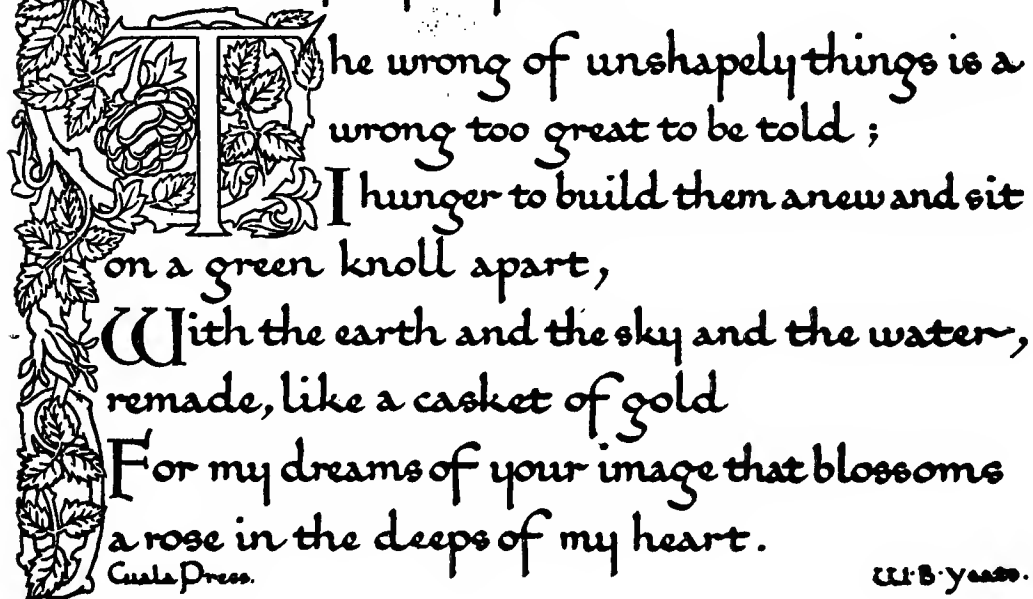 The wrong of unshapely things is a
wrong too great to be told ;
I hunger to build them anew and sit
on a green knoll apart,
With the earth and the sky and the water,
remade, like a casket of gold
For my dreams of your image that blossoms
a rose in the deeps of my heart.
Cuala Press. W·B·Yeats.